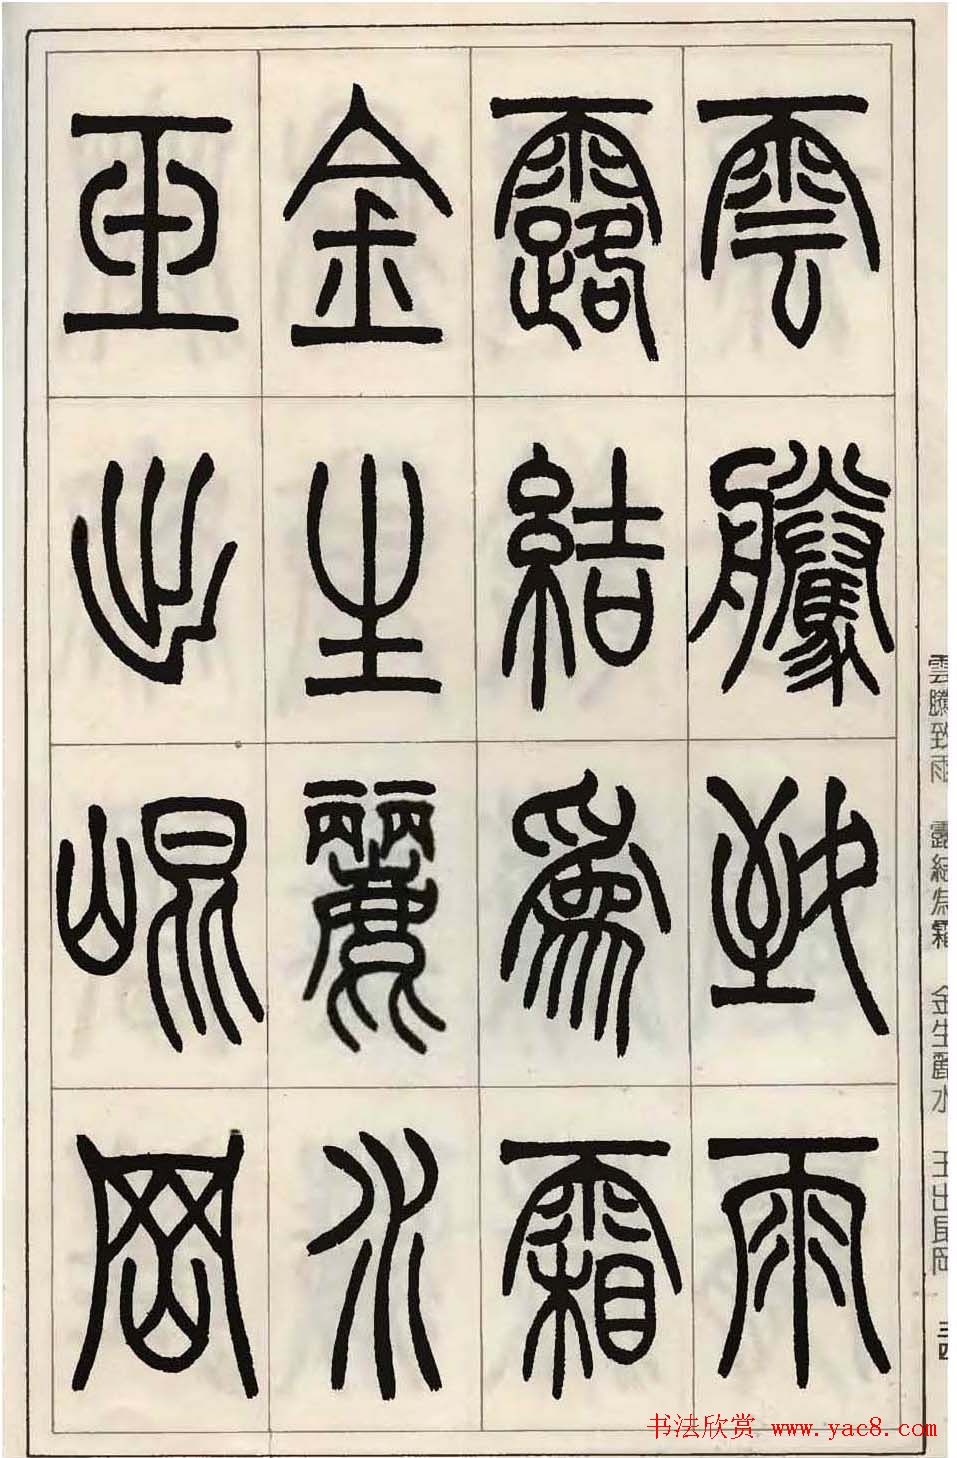 雲騰致雨
露結為霜
金生麗水
玉出崐岡
雲騰致雨 露結為霜 金生麗水 玉出昆岡
三四
书法欣赏 www.yac8.com